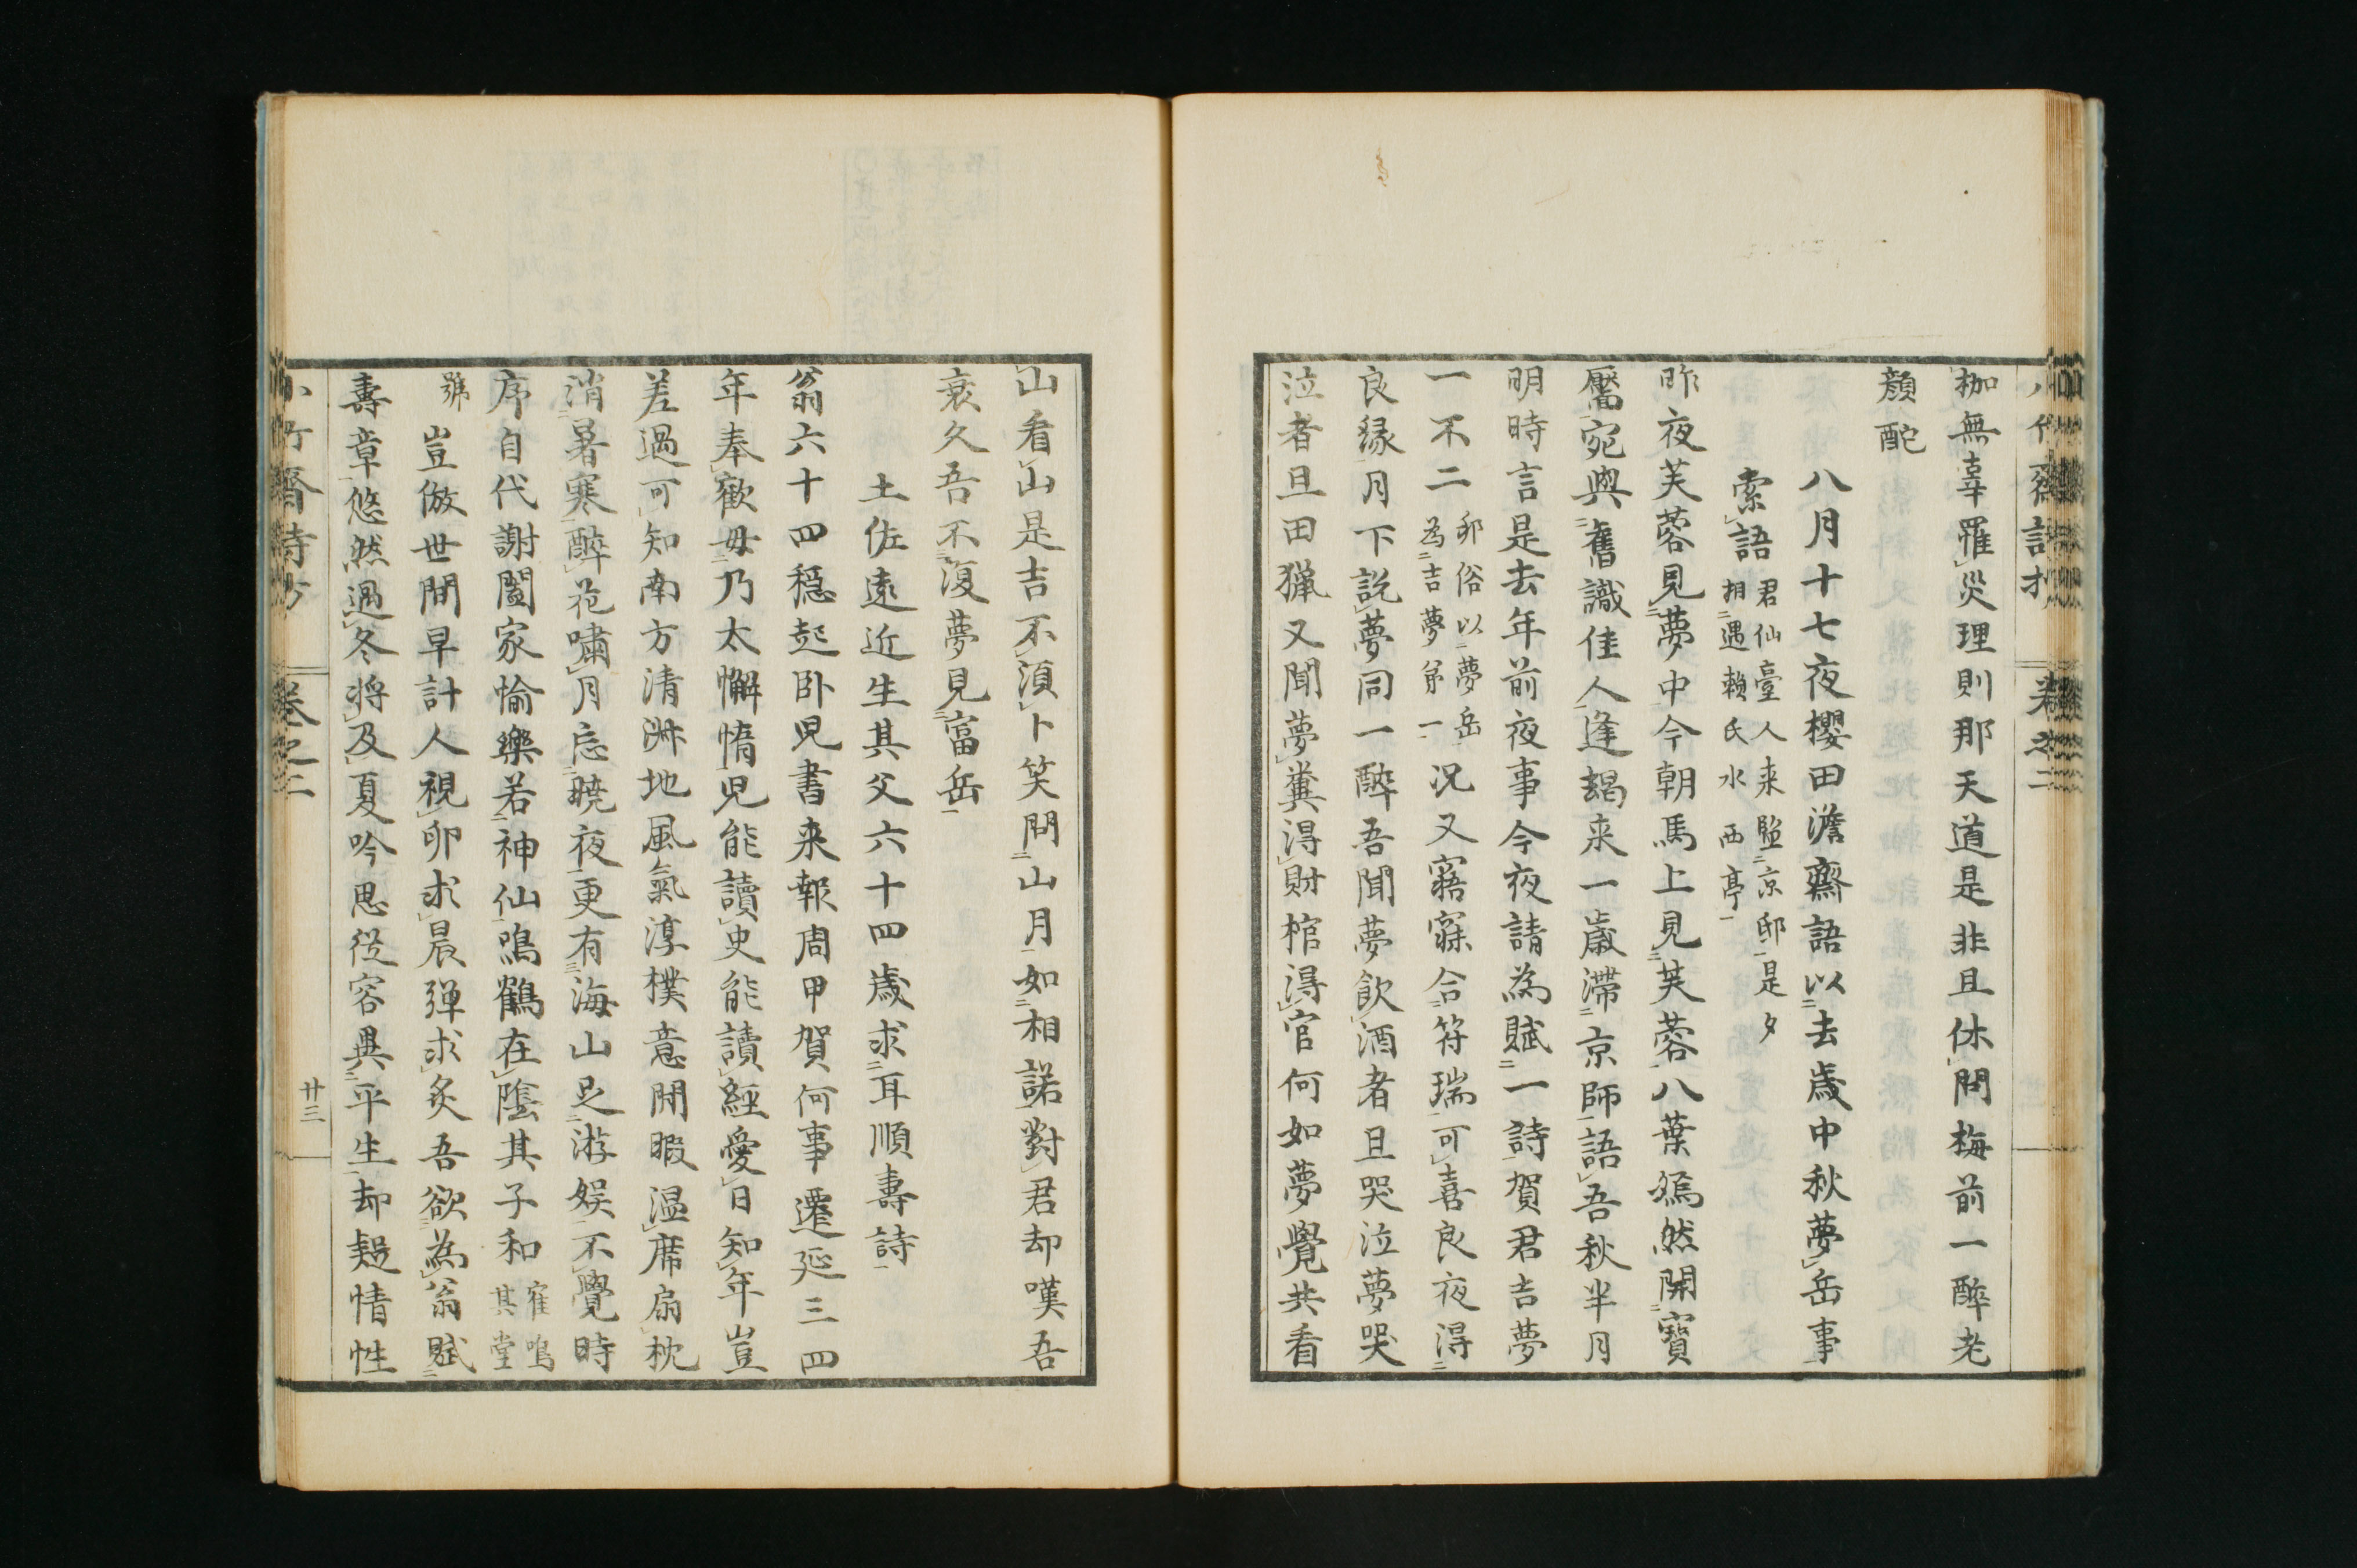 枷無辜罹災理則那天道是非且休問梅前一醉老
顏酡
八月十七夜櫻田澹齋語以去歲中秋夢岳事
索語
君仙臺人来監京邸是夕
相遇賴氏水西亭
昨夜芙蓉見夢中今朝馬上見芙蓉八葉嫣然開寶
靨宛與舊識佳人逢朅来一歲滯京師語吾秋半月
明時言是去年前夜事今夜請為賦一詩賀君吉夢
一不二
邦俗以夢岳
為吉夢第一
況又寤寐合符瑞可喜良夜得
良緣月下説夢同一醉吾聞夢飲酒者旦哭泣夢哭
泣者旦田獵又聞夢糞得財棺得官何如夢覺共看
山看山是吉不須卜笑問山月如相諾對君却嘆吾
衰久吾不復夢見富岳
土佐遠近生其父六十四歲求耳順壽詩
翁六十四穩起卧児書来報周甲賀何事遷延三四
年奉歡毋乃太懈惰児能讀史能讀經愛日知年豈
差過可知南方清淋地風氣淳樸意閒暇溫席扇枕
消暑寒醉花嘯月忘曉夜更有海山足游娱不覺時
序自代謝闔家愉樂若神仙鳴鶴在陰其子和
寉鳴
其堂
號
豈倣世間早計人視卵求晨弾求炙吾欲為翁賦
壽章悠然遇冬將及夏吟思従容異平生却疑情性
小竹齋詩抄
卷之二
廿三